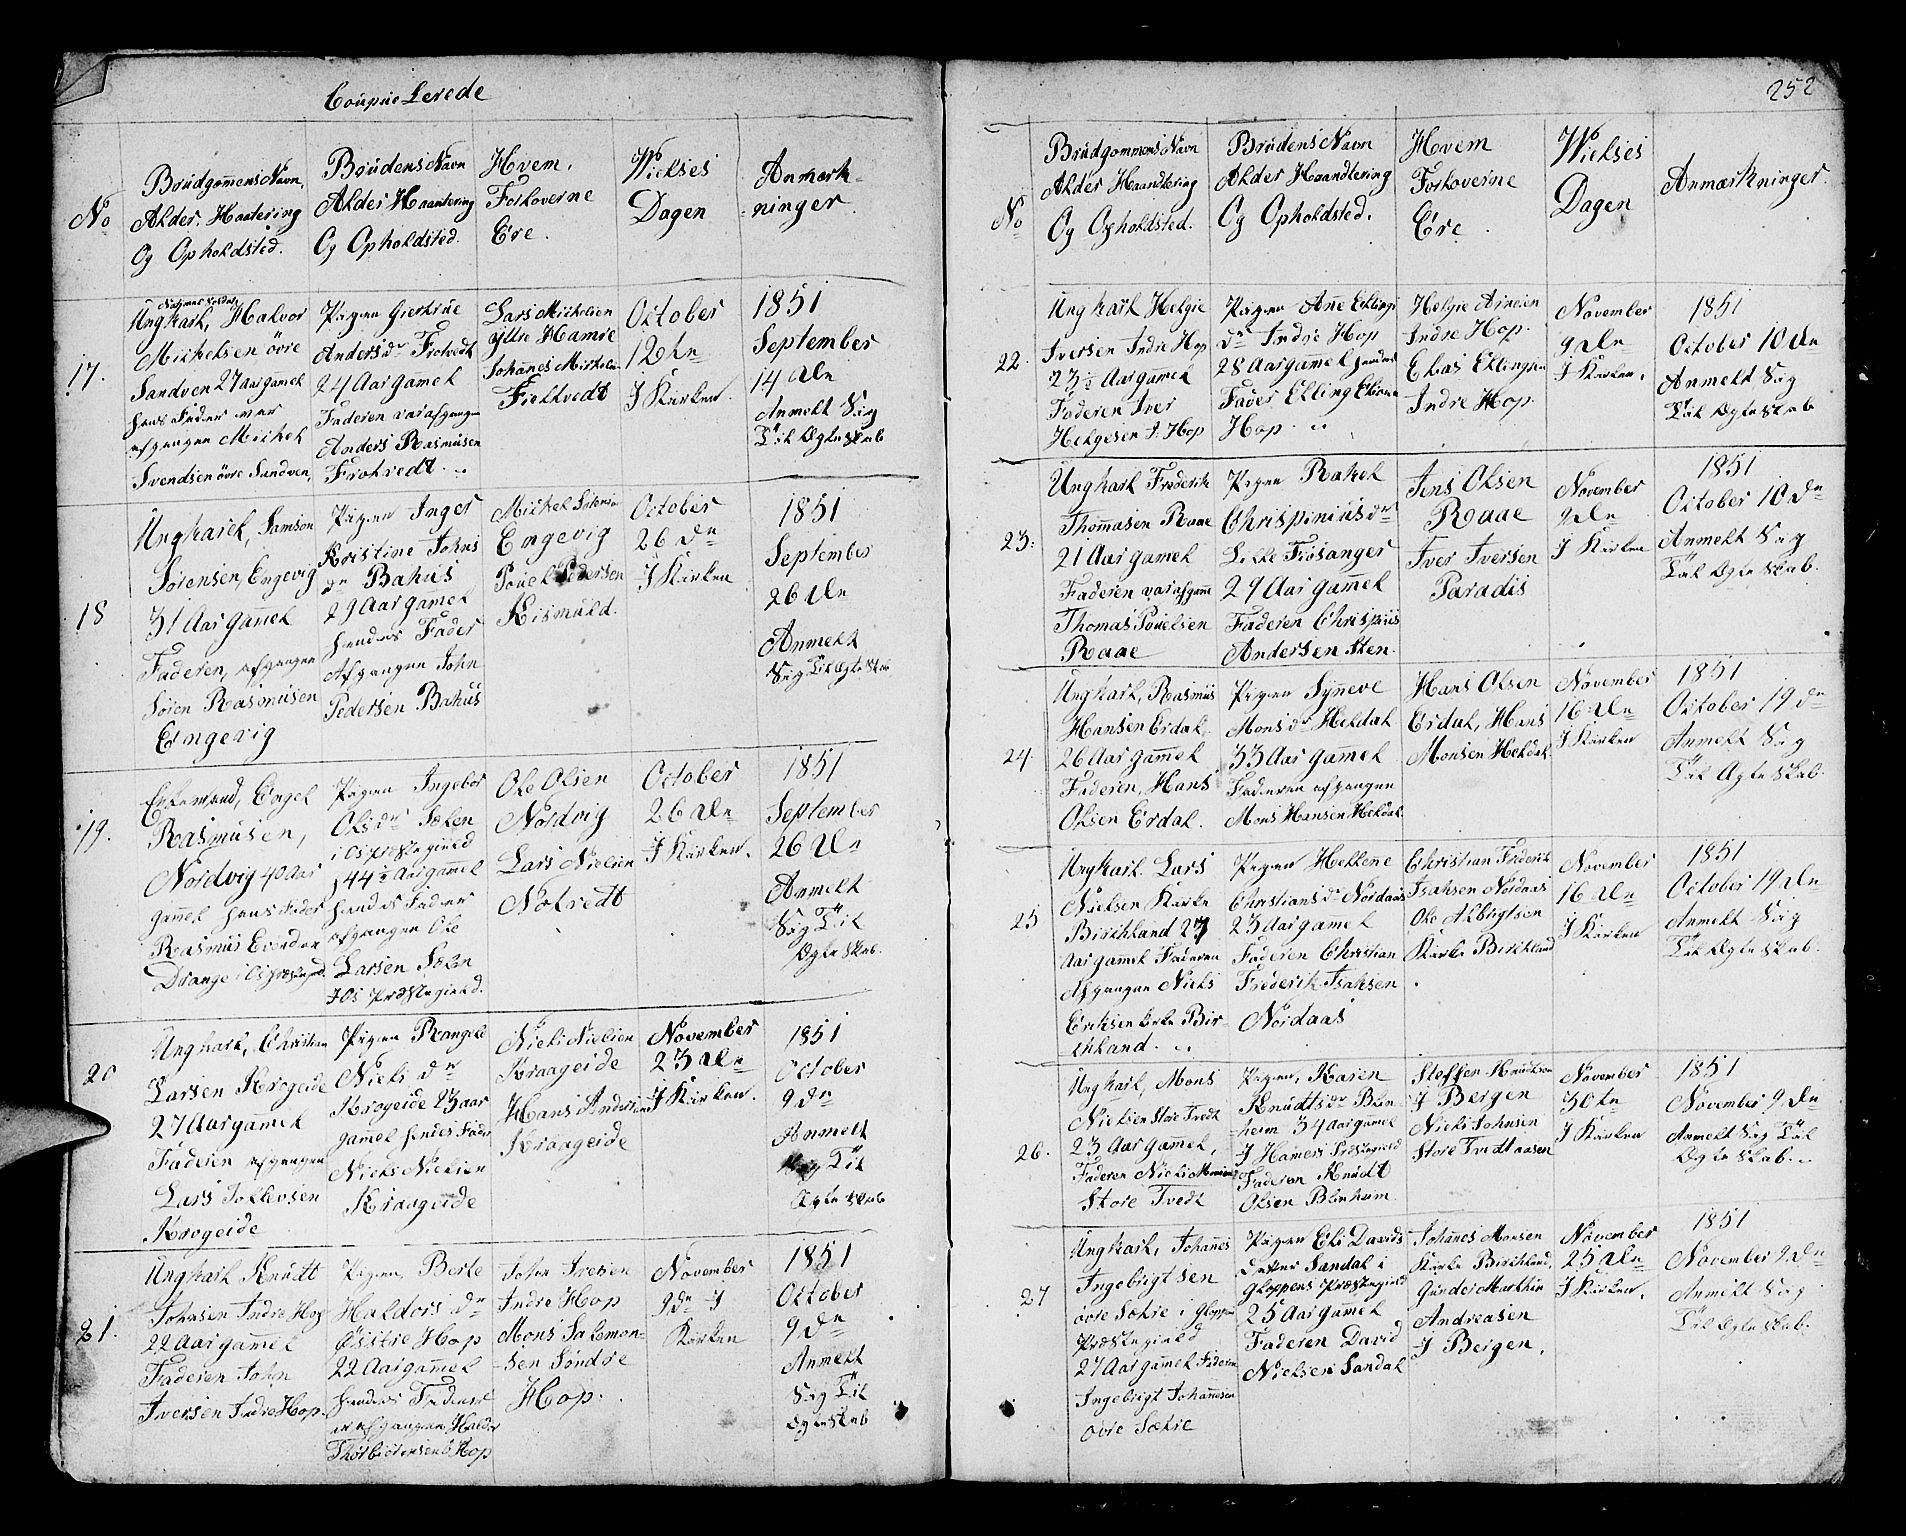 CoupueLerede
No
BrudgommensNavn,
Alder, Haatering
Og Opholdsted.
BrudensNavn
Alder Haantering
Og Opholdsted.
Hvem,
Forloverne
Ere.
Vielses
Dagen
Anmærk-
-ninger.
17.
Ungkarl, Halvor
Michelsen övre
Sandven 27 Aar gamel
hans Fader var
afgangen Michel
Svendsen övre Sandven,
Pigen Giertrue
Andersdr Frotvedt
24 Aar gamel
Faderen var afgangen
Anders Rasmusen
Frotvedt.
Lars Michelsen
yttre Hamre
Johanes Mickels
Fieltvedt
October
12te
I Kirken.
1851
September
14 de
Anmelt Sig
Til Ægteskab
18
Ungkarel, Samson
Sörensen, Engevig
31 Aar gammel
Faderen, afgangen
Sören Rasmusen
Engevig
Pigen Inger
Kristine Johns
dr Bahus
29 Aar gammel
hendes Fader
Afgangen John
Pedersen Bahus
Michel
Engevig
Pouel Pedersen
Rismuld.
October
26 de
I Kirken
1851
September
26 de
Anmelt
Sig Til Ægteskab
19.
Enkemand, Engel
Rasmusen,
Nordvig 40 Aar
gammel hans Fader
Rasmus
Drange i Os præstegield
Pigen Ingebor
Olsdr Solen
i Os Præstegield
44½ Aar gammel
hendes Fader
afgangen Ole
Larsen Solen
I Os Præstegield.
Ole Olsen
Nordvig
Lars Nielsen
Notvedt
October
26 de
I Kirken.
1851
September
26 de
Anmelt
Sig Til
Ægteskab.
20
Ungkarl, Christian
Larsen Krogeide
27 Aar gammel
Faderen afgangen
Lars Tollevsen
Krogeide
Pigen Rangele
Niels dr
Krogeide 23 aar
gamel hendes Fader
Niels Nielsen
Kraageide
Niels Nielsen
Kraageide
Hans Andersen
Kraageide
November
23 de
I Kirken.
1851
October
9 de
Anmelt
Sig Til
Ægteskab
21.
Ungkarl Knudt
Johnsen Indre Hop
22 Aar gammel
Faderen John
Iversen Indre Hop.
Pigen, Berte
Haldors dr
Östre Hop
22 Aar gammel
hendes Fader
er afgangen Haldor
Thorbiörnsen ö Hop
John Iversen
Indre Hop
Mons Salemon-
-sen Söndre
Hop.
November
9de I
Kirken
1851
October
9 de
Anmelt
Sig Til
Ægteskab
252
No
BrudgommensNavn
Alder Haandtering
Og Opholdsted.
BrudensNavn
Alder Haandtering
Og Opholdsted.
Hvem
Forloverne
Ere.
Vielses
Dagen
Anmærkninger.
22.
Ungkarl Helgie
Iversen Indre Hop
23½ Aar gamel
Faderen Iver
Helgesen I. Hop
Pigen Ane Ellings
dr Indre Hop
28 Aar gamel hendes
Fader Elling
Hop.
Helgie Arnesen
Indre Hop.
Elias Ellingsen
Indre Hop
November
9 de
I Kirken.
1851
October 10 de
Anmelt Sig
Til Ægteskab
23.
Ungkarl Frederik
Thomasen Raae
21 Aar gamel
Faderen var afgangen
Thomas Pouelsen
Raae
Pigen Rakel
Chrispinius dr
Lille Frosanger
29 Aar gammel
Faderen Chrispius
Andersen Sten.
Jens Olsen
Raae
Iver Iversen
Paradis
November
9 de
I Kirken
1851
October 10 de
Anmelt Sig
Til Ægteskab.
24.
Ungkarl, Rasmus
Hansen Erdal,
26 Aar gammel
Faderen, Hans
Olsen Erdal.
Pigen Syneve
Mons dr Heldal
33 Aar gamel
Faderen afgangen
Mons Hansen Heldal
Hans Olsen
Erdal, Hans
Monsen Heldal
November
16 de
I Kirken
1851
October 19 de
Anmelt Sig
Til Ægteskab.
25
Ungkarl Lars
Nielsen Kirke
Birchland 23
Aar gammel Faderen
Afgangen Niels
Eriksen Kirke Bir-
chland.
Pigen Hellene
Christians dr Nordaas
23 Aar gamel
Faderen Christian
Frederik Isaksen
Nordaas
Christian Frederik
Isaksen Nordaas
Ole Albrigtsen
Kirke Birchland
November
16 de
I Kirken
1851
October 19 de
Anmelt Sig
Til Ægteskab.
26.
Ungkarl, Mons
Nielsen Store Tvedt
23 Aar gammel,
Faderen Niels Monsen
Store Tvedt
Pigen, Karen
Knudtsdr Blin
heim 34 aar gamel
I Hamers Præstegield
Faderen Knudt
Olsen Blinheim
Steffen Knudtsen
I Bergen
Niels Johnsen
Store Tvedtaasen
November
30 te
I Kirken
1851
November 9 de
Anmelt Sig Til
Ægteskab.
27
Ungkarl, Johannes
Ingebrigtsen
övre Sækre i Gloppens
Præstegield
27 Aar gammel Faderen
Ingebrigt Johannesen
Övre Sækre
Pigen Eli Davids
datter Sandal i
Gloppens Præstegield
25 Aar gamel
Faderen David
Nielsen Sandal
Johanes Monsen
Kirke Birchland,
Gunder Mathias
Andreasen
I Bergen,
November
25 de
I Kirken,
1851
November 9 de
Anmelt Sig
Til Ægteskab.